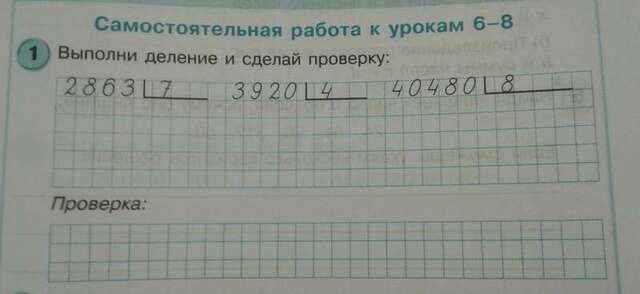 Самостоятельная работа к урокам 6–8
1 Выполни деление и сделай проверку:
2863 7 3920 4 40480 8
Проверка: